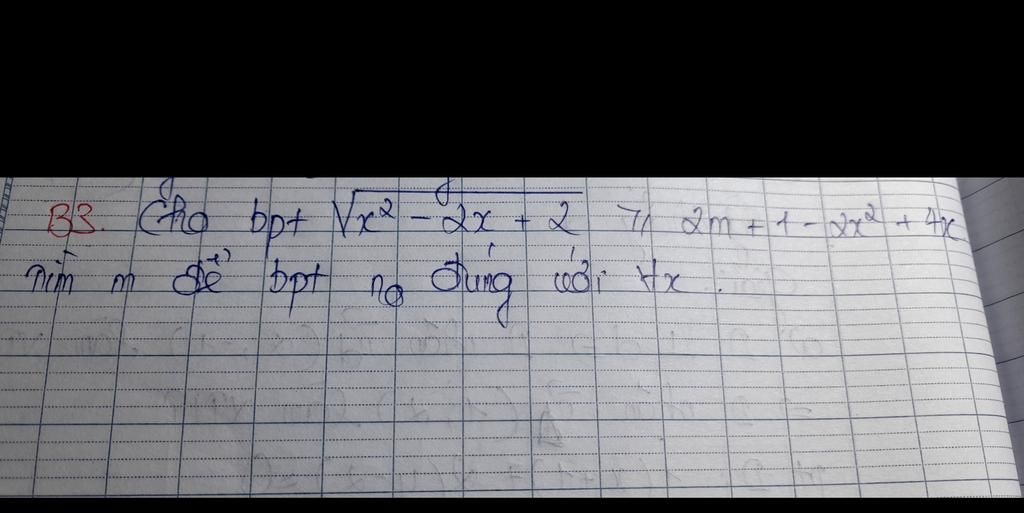 B3. Cho bpt √(x² - 2x + 2) ≥ 2m + 1 - 2x² + 4x
tìm m để bpt no đúng với ∀x.